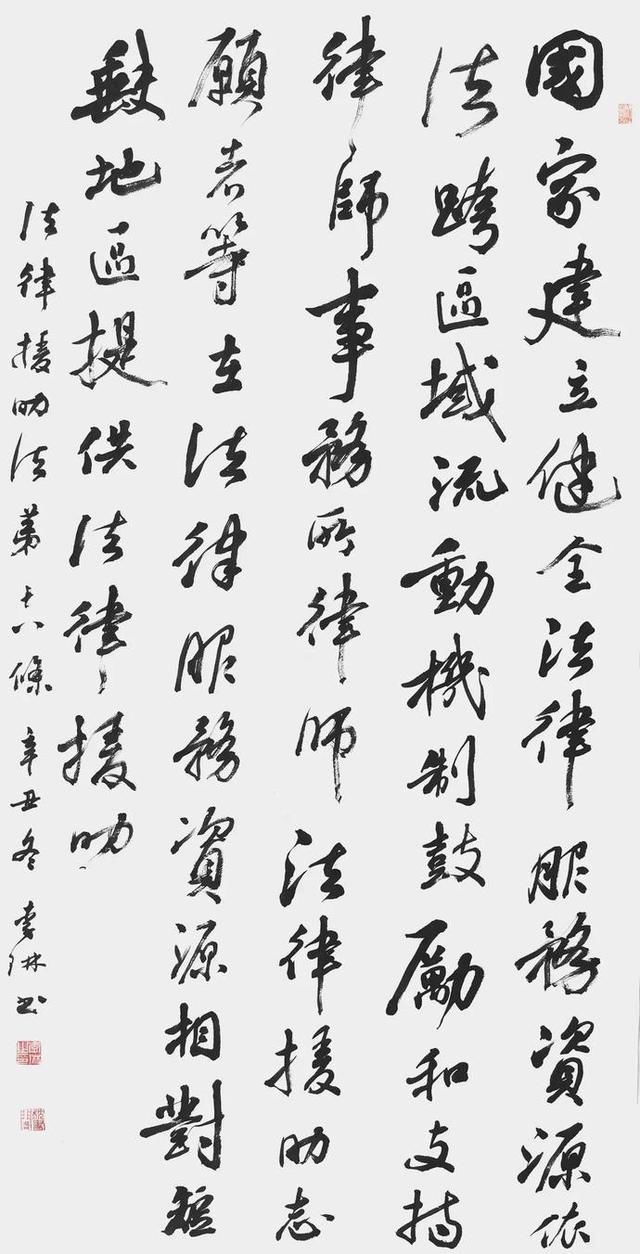 國家建立健全法律服務資源依
法跨區域流動機制鼓勵和支持
律師事務所律师法律援助志
願者等在法律服務資源相對短
缺地區提供法律援助
法律援助法第十八條 辛丑冬 李琳書